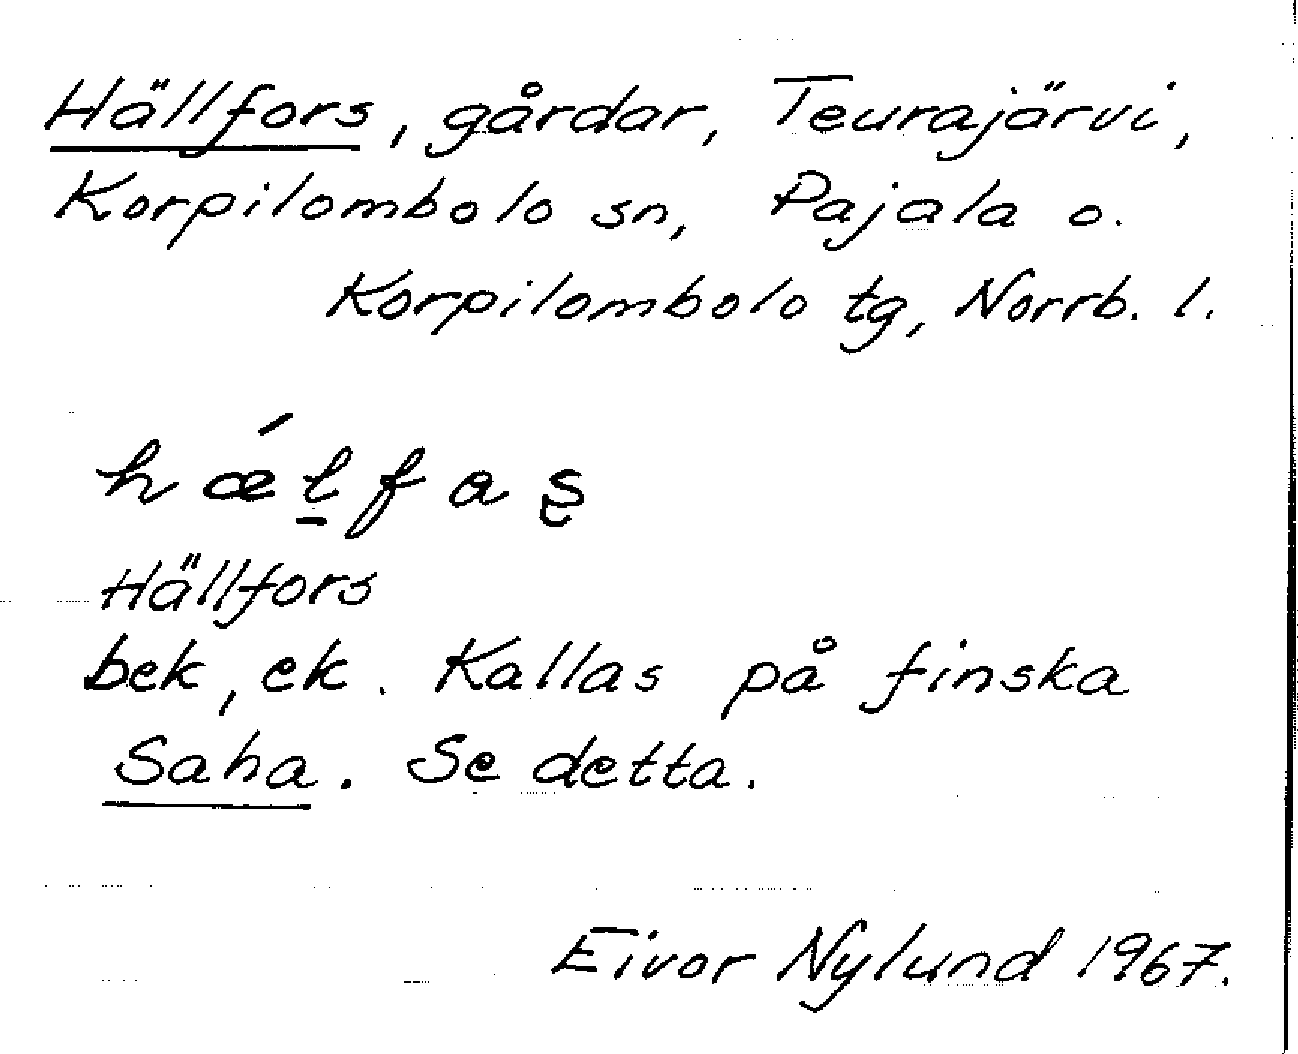 Hällfors, gårdar, Teurajärvi,
Korpilombolo sn, Pajala o.
Korpilombolo tg, Norrb. l.
hǽl̠fas̨
Hällfors
bek, ek. Kallas på finska
Saha. Se detta.
Eivor Nylund 1967.